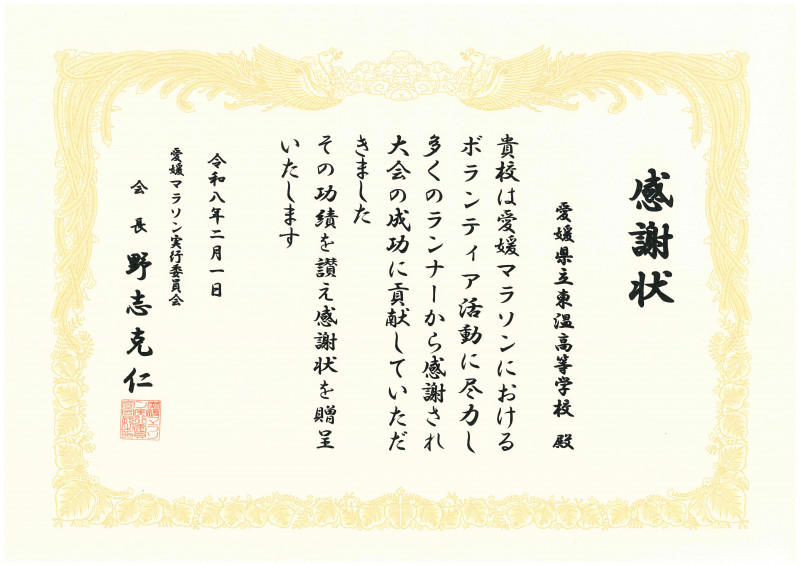 感謝状
愛媛県立東温高等学校 殿
貴校は愛媛マラソンにおける
ボランティア活動に尽力し
多くのランナーから感謝され
大会の成功に貢献していただ
きました
その功績を讃え感謝状を贈呈
いたします
令和八年二月一日
愛媛マラソン実行委員会
会長 野志克仁